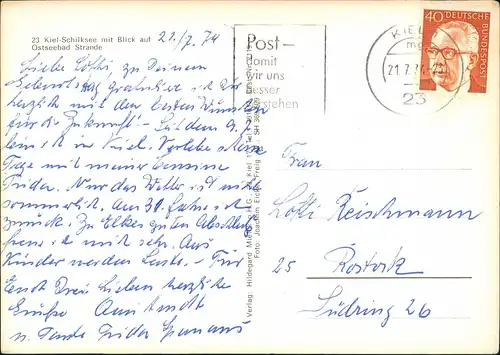 23 Kiel-Schilksee mit Blick auf
Ostseebad Strande
21/7. 74
Liebe Lotti, zu Deinem
Geburtstag gratuliere ich Dir
herzlich mit den besten Wünschen
für die Zukunft! - Seit dem 9.7.
bin ich in Kiel. Verlebe
Tage mit meiner Cousine
Frida. Nur das Wetter ist nicht
sommerlich. Am 31. fahre ich
zurück. Zu Elkes
freue ich mich sehr. Aus
Kinder werden Leute. - Für
Euch Drei Lieben herzliche
Grüße
u. Tante Frida
Verlag: Hildegard
Foto: Joachim
Post-
damit
wir uns
besser
verstehen
KIEL
21.7.74
23
40 DEUTSCHE
BUNDESPOST
Frau
Lotti Reischmann
25 Rostock
Südring 26